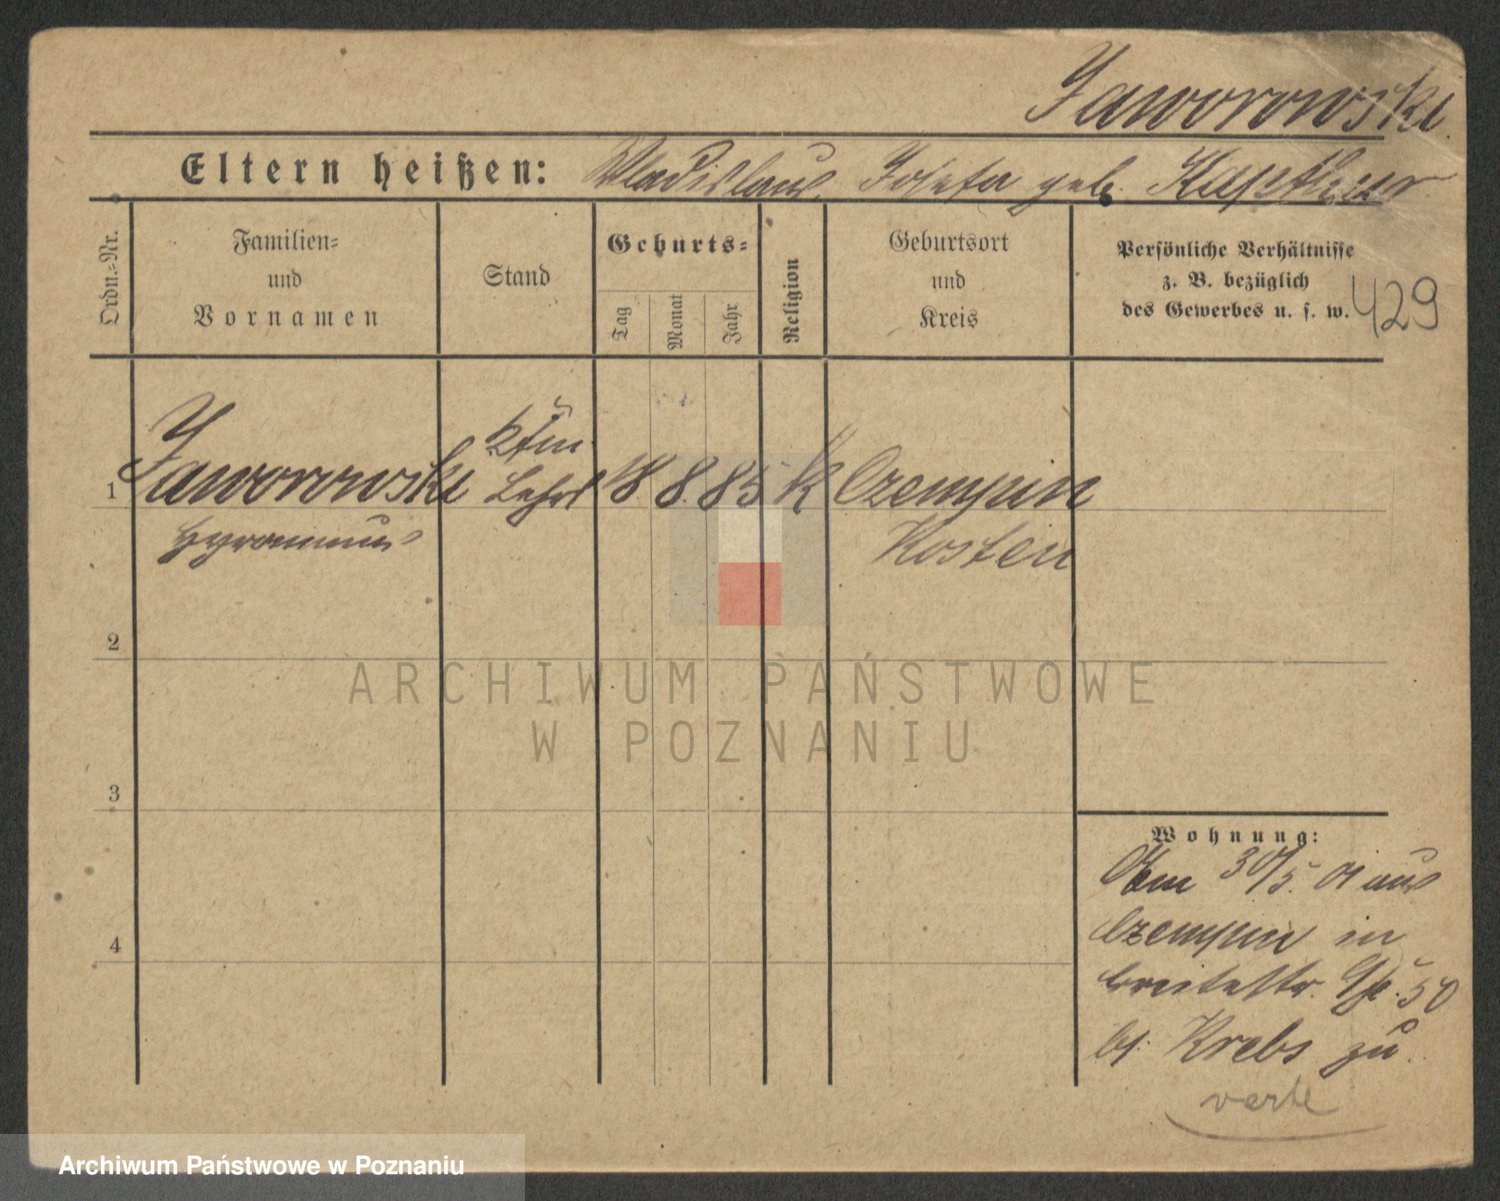 Jaworowski
Eltern heißen: Wladislaus, Josefa geb.
Ordn.=Nr.
Familien=
und
Vornamen
Stand
Geburts=
Tag
Monat
Jahr
Religion
Geburtsort
und
Kreis
Persönliche Verhältnisse
z. B. bezüglich
des Gewerbes u. s. w.
429
Kfm
1 Jaworowski Lehrl 18 8 85 K Czempin
Kosten
2
ARCHIWUM PAŃSTWOWE
W POZNANIU
3
Wohnung:
Am 30/5. 01 aus
4 Czempin in
breitestr. 50
bj. Krebs zu
verte
Archiwum Państwowe w Poznaniu